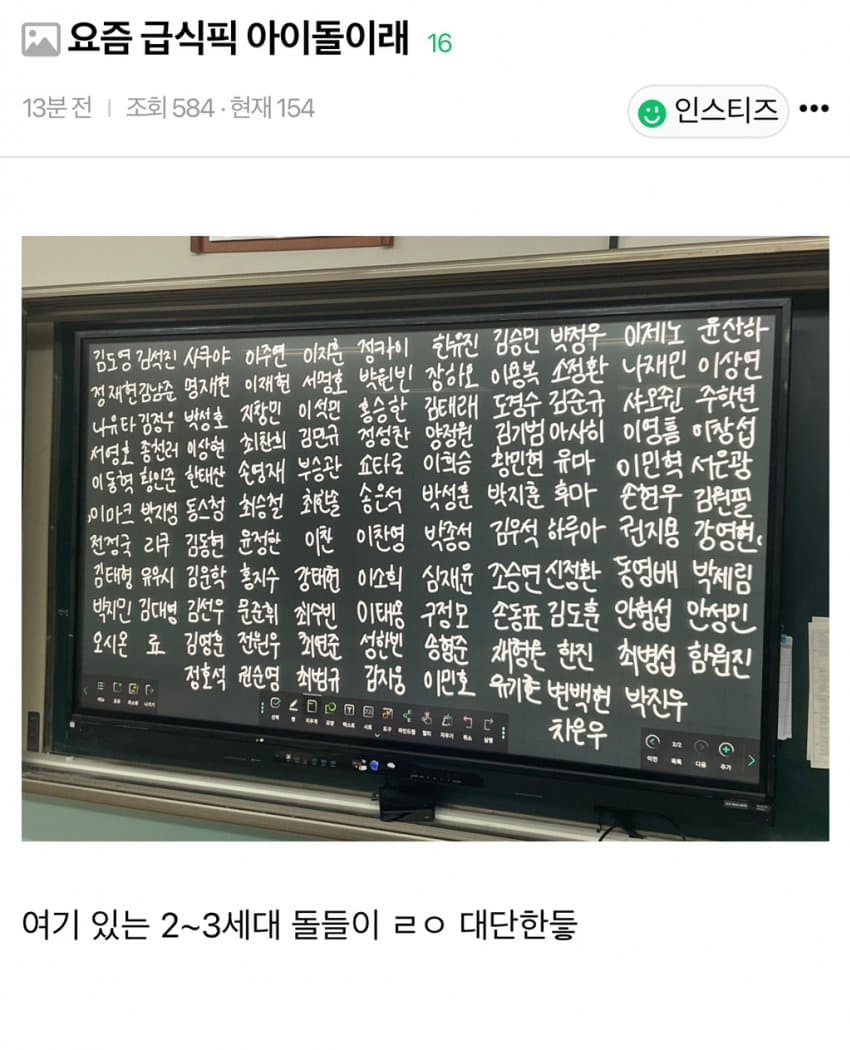 요즘 급식픽 아이돌이래 16
13분 전 | 조회 584 · 현재 154
인스티즈
김도영 김석진 사쿠야 이주연 이지훈 정카이 한유진 김승민 박정우 이제노 윤산하
정재현 김남준 명재현 이재현 서명호 박원빈 장하오 이용복 소정환 나재민 이상연
나유타 김정우 박성호 지창민 이석민 홍승한 김태래 도경수 김준규 샤오쥔 주학년
서영호 종천러 이상현 최찬희 김민규 정성찬 양정원 김기범 아사히 이영흠 이창섭
이동혁 황인준 한태산 손영재 부승관 쇼타로 이희승 황민현 유마 이민혁 서은광
이마크 박지성 동스청 최승철 최한솔 송은석 박성훈 박지훈 후마 손현우 김원필
전정국 리쿠 김동현 윤정한 이찬 이찬영 박종성 김우석 하루아 권지용 강영현
김태형 유우시 김운학 홍지수 강태현 이소희 심재윤 조승연 신정환 동영배 박제림
박지민 김대영 김선우 문준휘 최수빈 이태용 구정모 손동표 김도훈 안형섭 안성민
오시온 료 김영훈 전원우 최연준 성한빈 송형준 채형원 한진 최병섭 함원진
정호석 권순영 최범규 김지웅 이민호 유기현 변백현 박진우
차은우
메뉴 공유
선택 펜 지우개 도형 텍스트 시트 도구 마인드맵 멀티 지우기 취소 실행
이전 2/2 목록 다음 추가
여기 있는 2~3세대 돌들이 ㄹㅇ 대단한듷